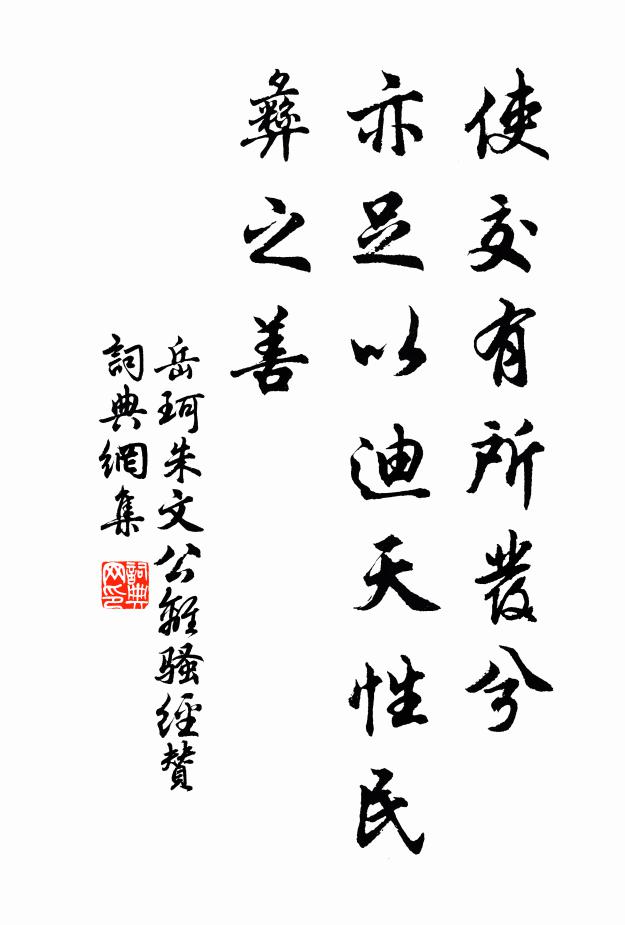 使交有所發兮
亦足以迪天性民
彝之善
岳珂朱文公離騷經贊
詞典網集
詞典
网印